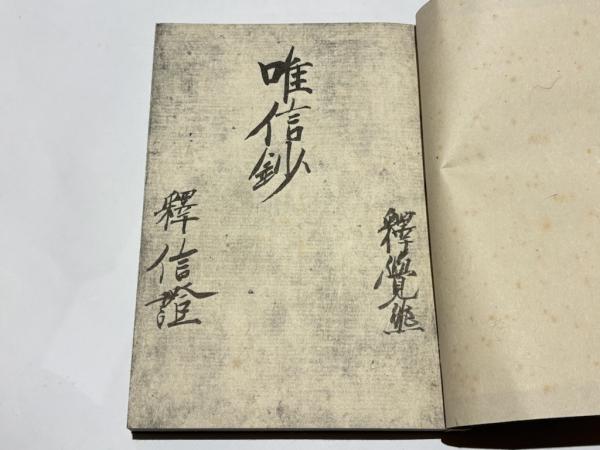 唯信鈔
釋覺然
釋信證